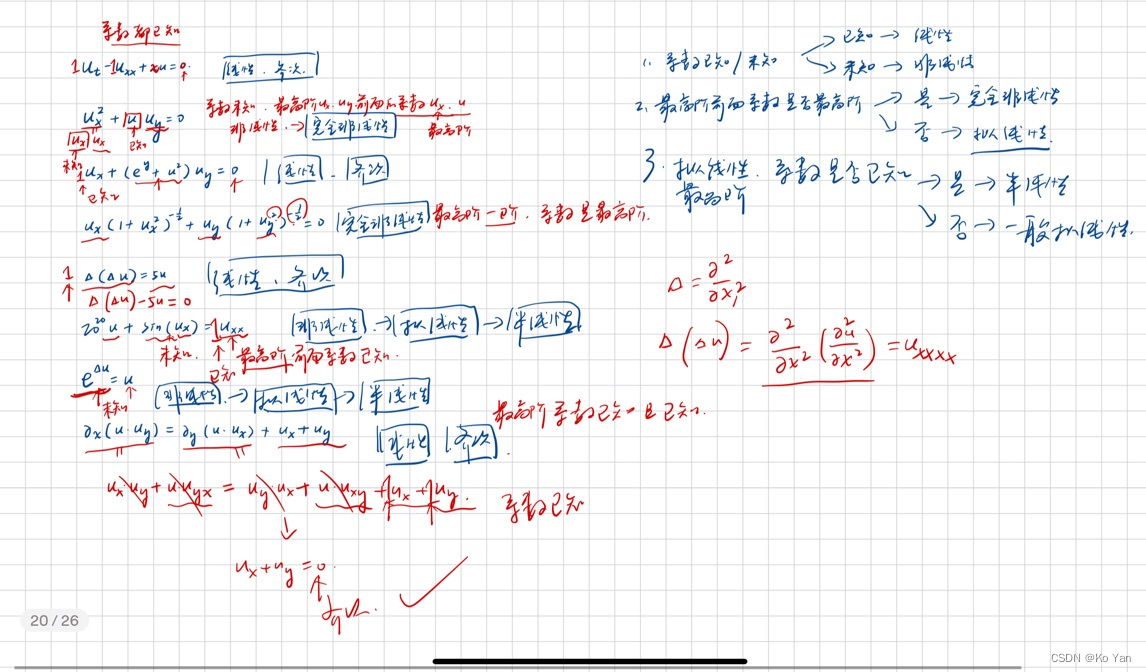 系数都已知
1u_t - 1u_xx + xu = 0. 线性、齐次
u_x² + u u_y = 0 系数未知. 最高阶 u_x. u_y 前面的系数 u_x. u
u_x u_x 已知 非线性. → 完全非线性 最高阶
未知
1u_x + (e^y + u²) u_y = 0 线性 齐次
已知
u_x (1 + u_x²)^{-1/2} + u_y (1 + u_y²)^{-1/2} = 0 完全非线性 最高阶一阶. 系数是最高阶.
1 Δ(Δu) = 5u 线性、齐次
Δ(Δu) - 5u = 0
20^{20} u + sin(u_x) = 1u_xx 非线性 → 拟线性 → 半线性
未知. 已知 最高阶前面系数已知.
e^{Δu} = u 非线性. → 拟线性 → 半线性
未知
最高阶系数已知 且已知.
∂x(u·u_y) = ∂y(u·u_x) + u_x + u_y 线性 齐次.
u_x u_y + u·u_yx = u_y u_x + u·u_xy + 1u_x + 1u_y. 系数已知
↓
u_x + u_y = 0.
齐次.
1. 系数已知/未知 → 已知 → 线性
→ 未知 → 非线性
2. 最高阶前面系数是否最高阶 → 是 → 完全非线性
→ 否 → 拟线性.
3. 拟线性. 系数是否已知 → 是 → 半线性
最高阶
→ 否 → 一般拟线性.
Δ = ∂²/∂x₁²
Δ(Δu) = ∂²/∂x² (∂²u/∂x²) = u_xxxx
20 / 26
CSDN @Ko Yan